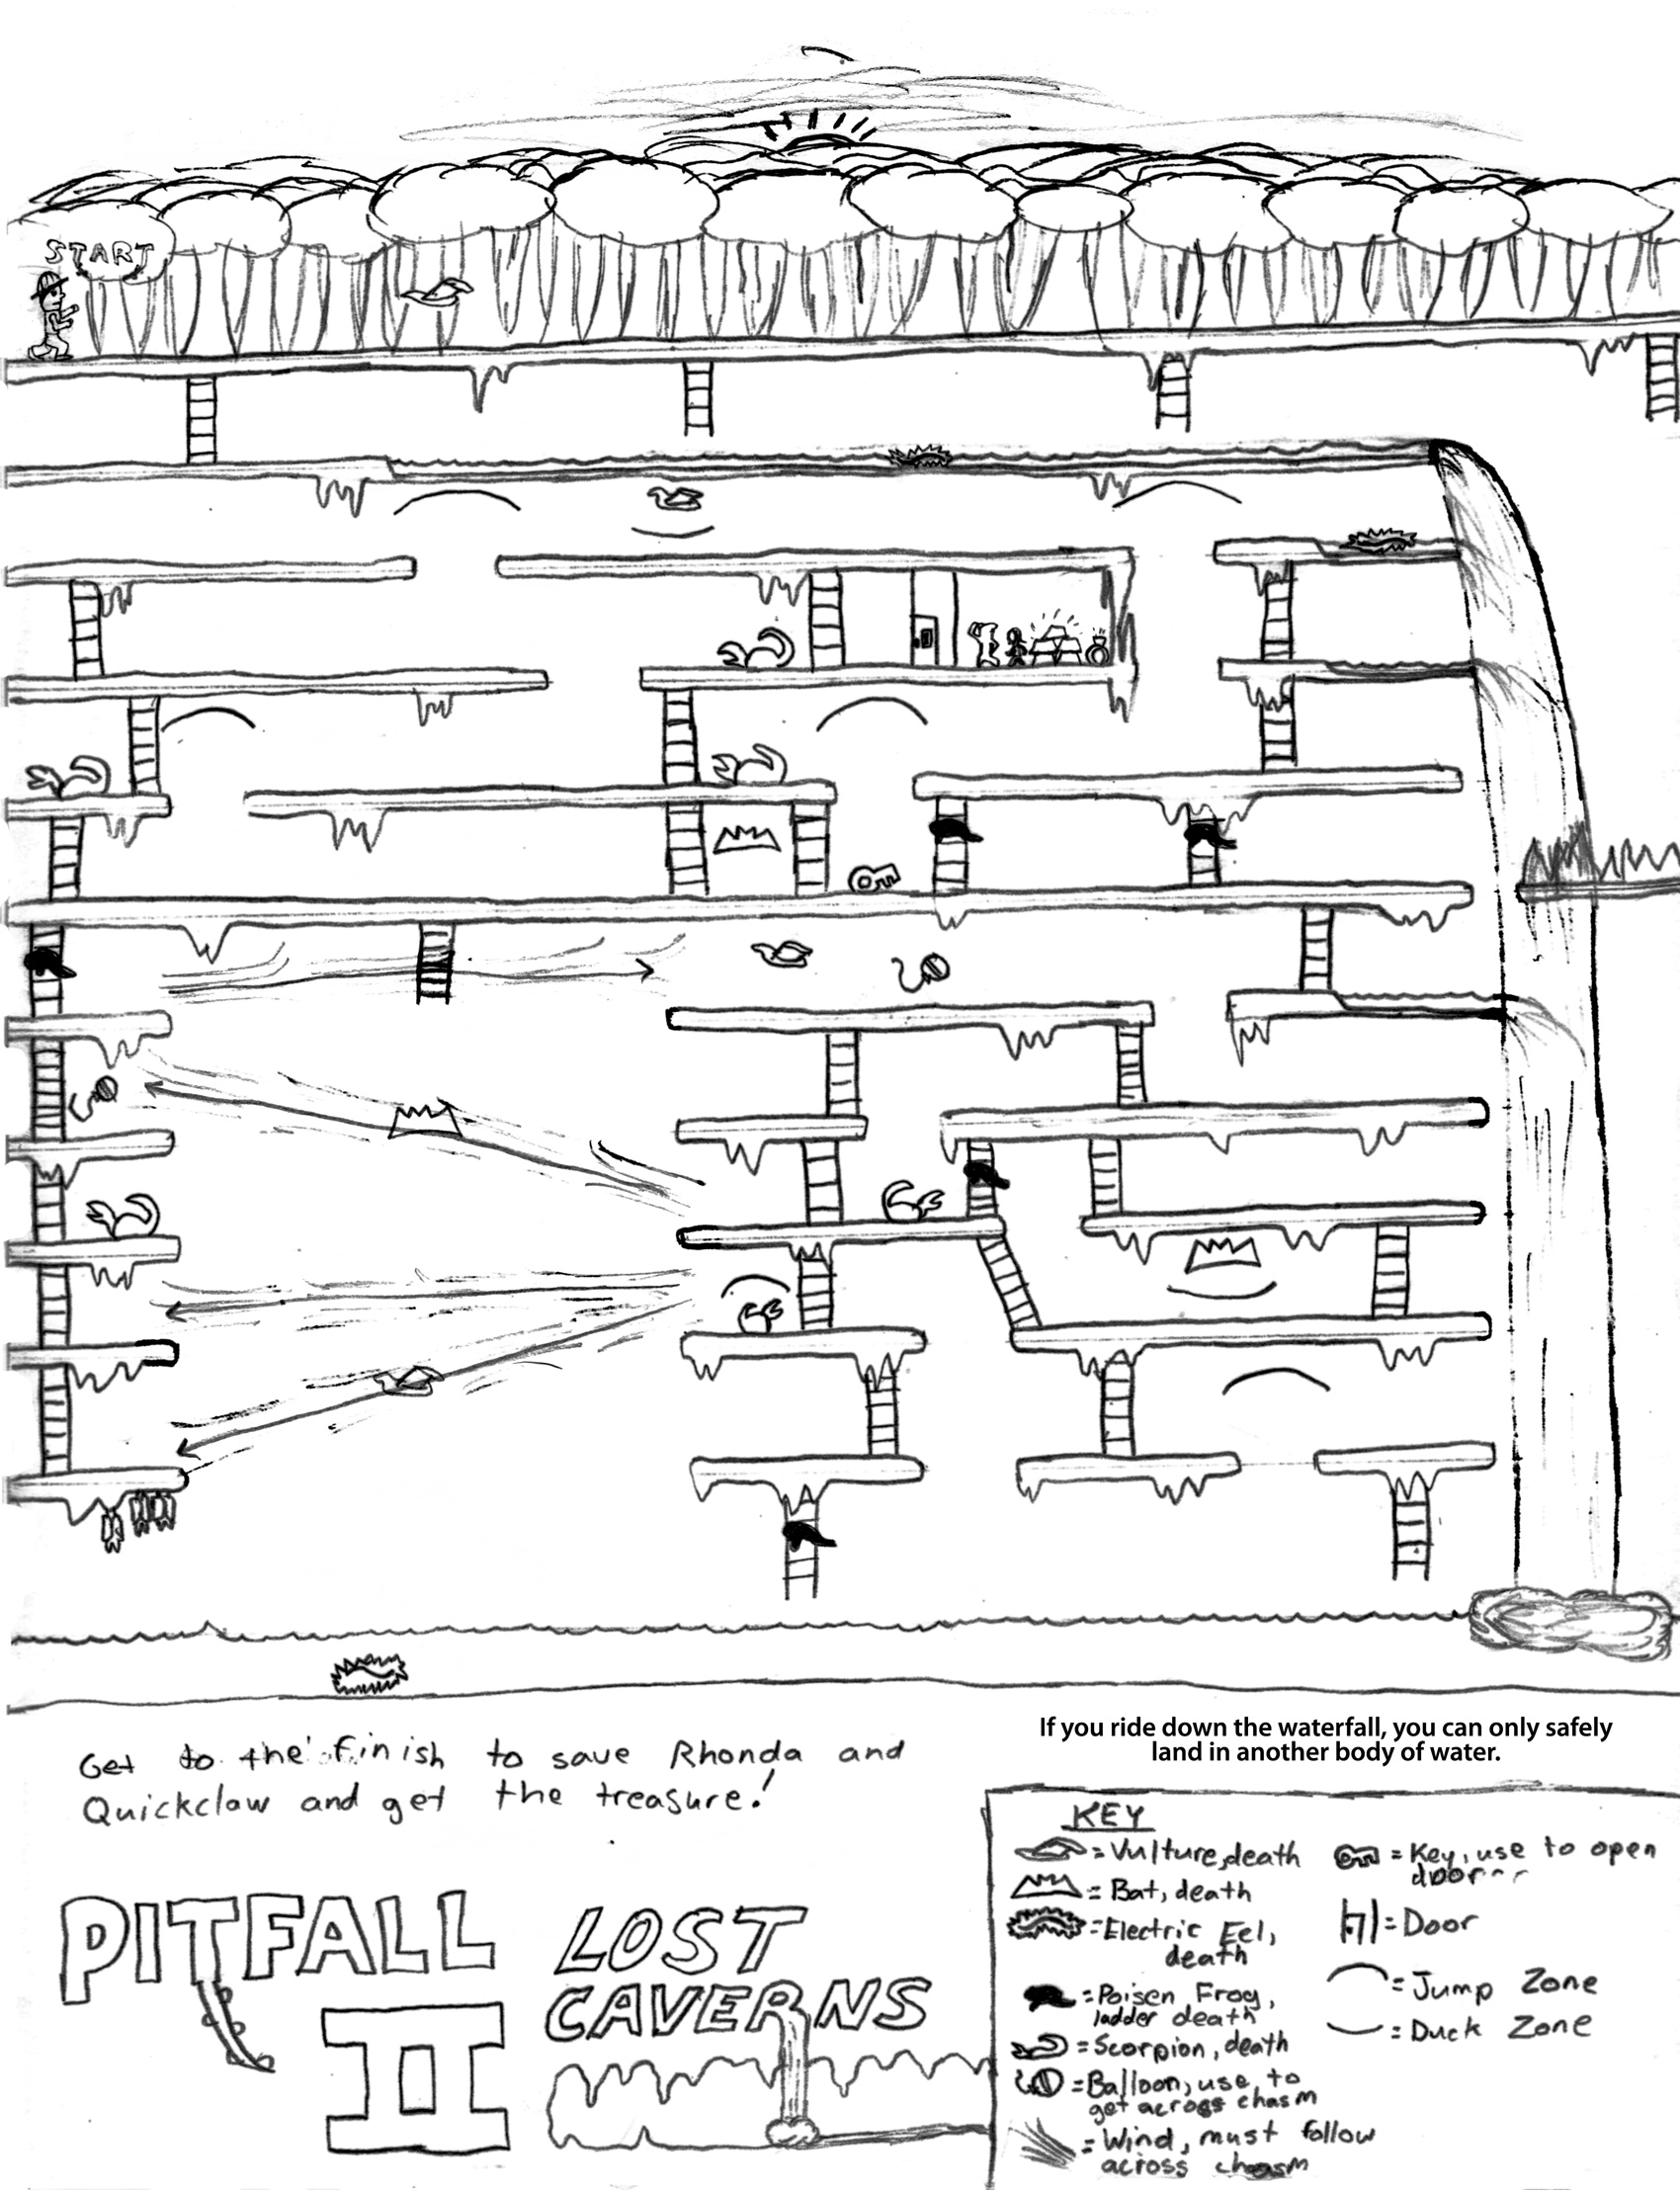 START
Get to the finish to save Rhonda and
Quickclaw and get the treasure!
If you ride down the waterfall, you can only safely
land in another body of water.
PITFALL
II
LOST
CAVERNS
KEY
= Vulture, death
= Bat, death
= Electric Eel,
death
= Poisen Frog,
ladder death
= Scorpion, death
= Balloon, use to
get across chasm
= Wind, must follow
across chasm
= Key, use to open
door
= Door
= Jump Zone
= Duck Zone